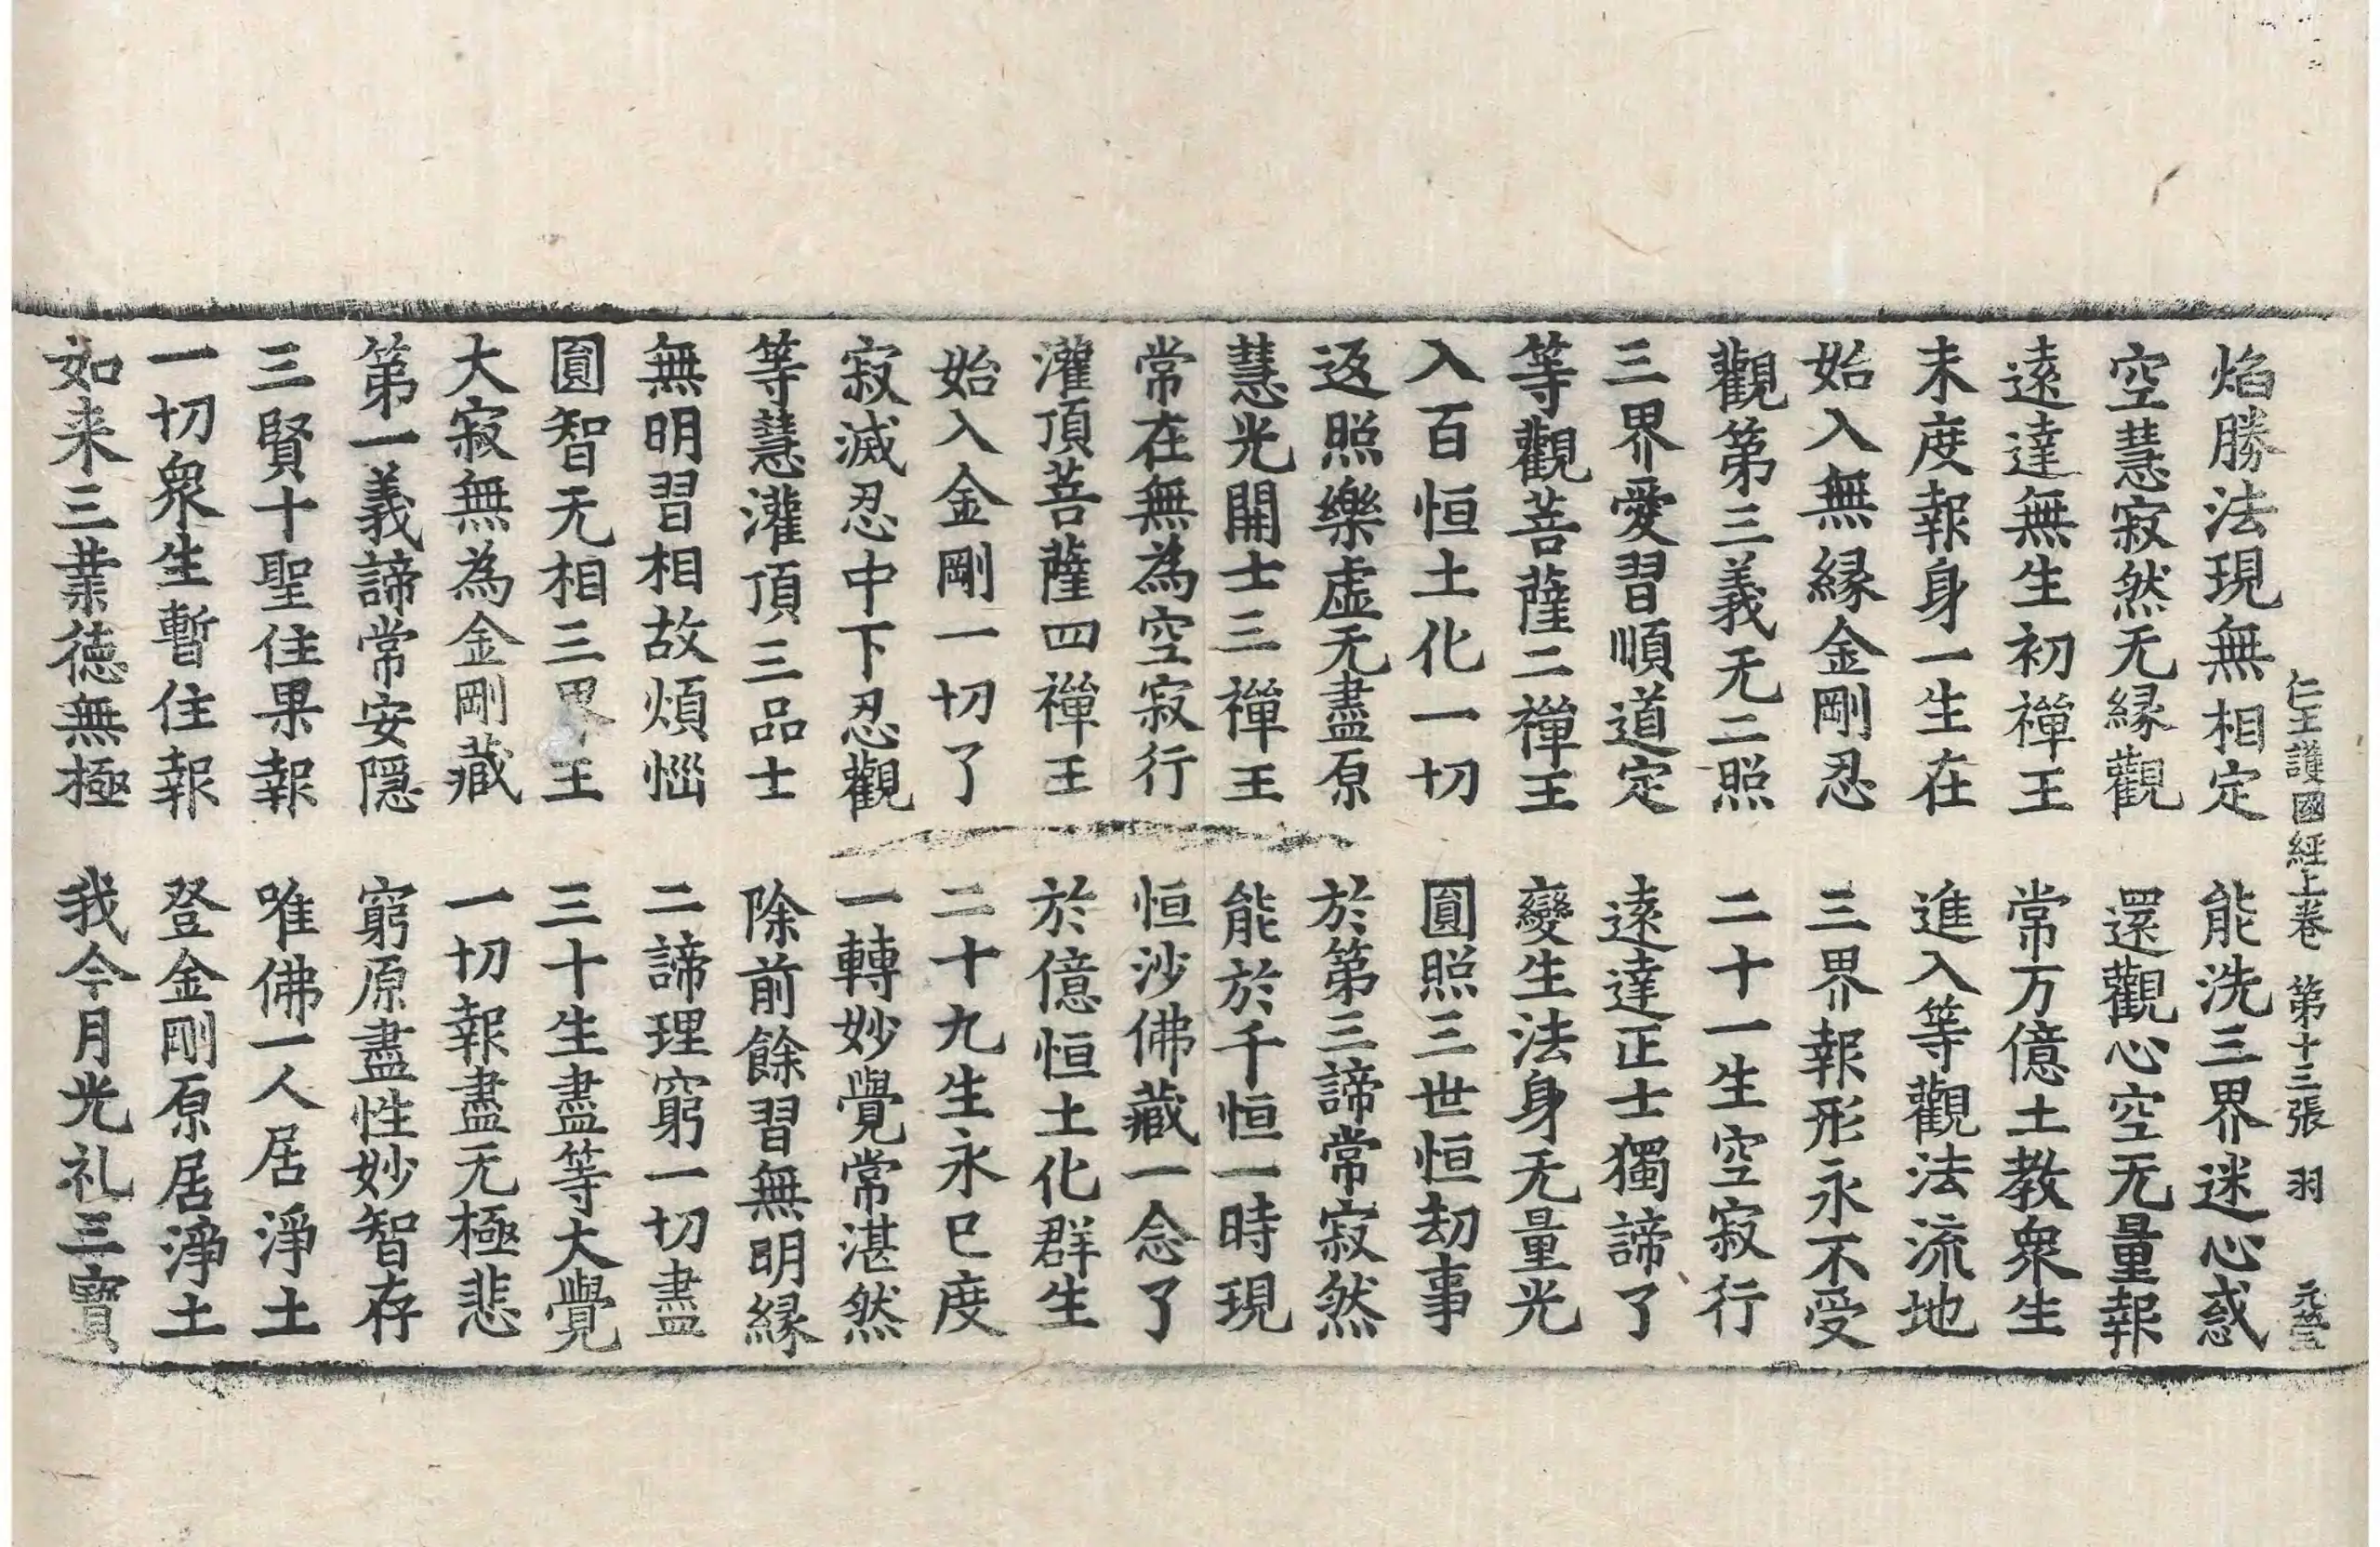 仁王護國經上卷 第十三張 羽
焰勝法現無相定 能洗三界迷心惑
空慧寂然无緣觀 還觀心空无量報
遠達無生初禪王 常万億土教衆生
未度報身一生在 進入等觀法流地
始入無緣金剛忍 三界報形永不受
觀第三義无二照 二十一生空寂行
三界愛習順道定 遠達正士獨諦了
等觀菩薩二禪王 變生法身无量光
入百恒土化一切 圓照三世恒劫事
返照樂虛无盡原 於第三諦常寂然
慧光開士三禪王 能於千恒一時現
常在無為空寂行 恒沙佛藏一念了
灌頂菩薩四禪王 於億恒土化群生
始入金剛一切了 二十九生永已度
寂滅忍中下忍觀 一轉妙覺常湛然
等慧灌頂三品士 除前餘習無明緣
無明習相故煩惱 二諦理窮一切盡
圓智无相三界王 三十生盡等大覺
大寂無為金剛藏 一切報盡无極悲
第一義諦常安隱 窮原盡性妙智存
三賢十聖住果報 唯佛一人居淨土
一切衆生暫住報 登金剛原居淨土
如来三業德無極 我今月光礼三寶